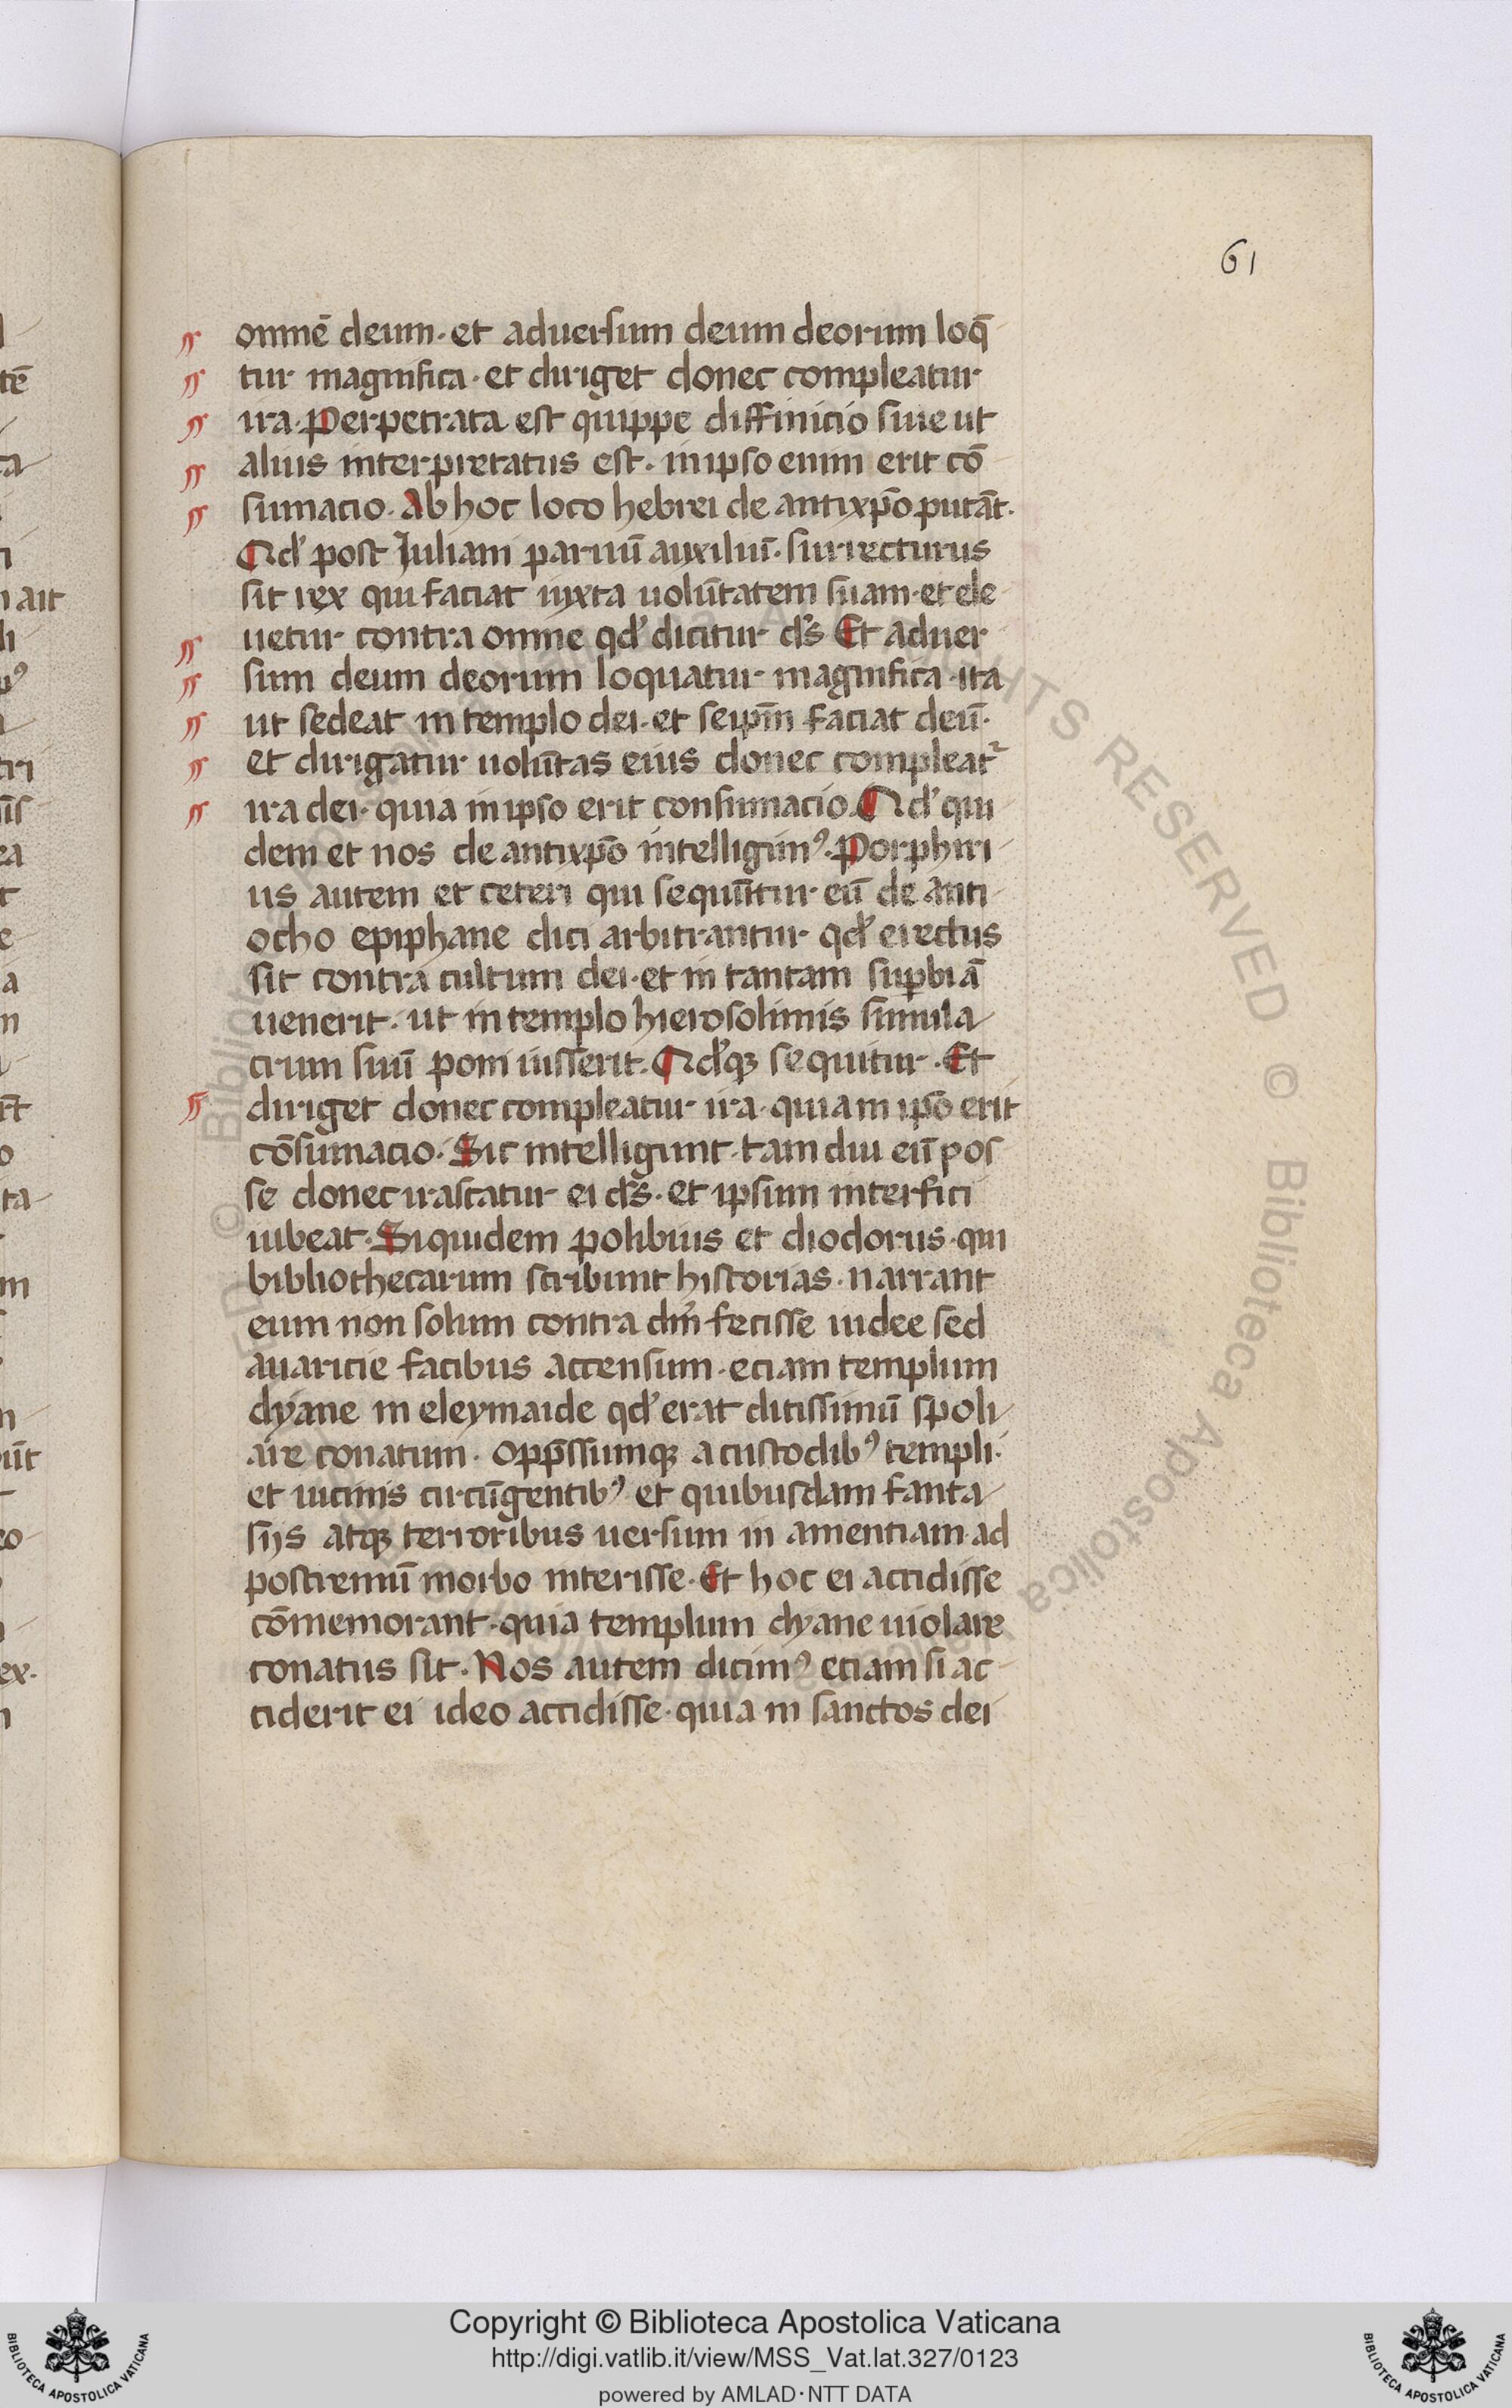 61
omnē deum· et aduersum deum deorum loq̄
tur magnifica· et diriget donec compleatur
ira· Perpetrata est quippe diffinicio siue ut
alius interpretatus est· in ipso enim erit cō
sumacio· Ab hoc loco hebrei de antixp̄o putāt·
Qd' post Juliam paruū auxiliū· surrecturus
sit rex qui faciat iuxta uolūtatem suam· et ele
uetur contra omne qd' dicitur d's Et aduer
sum deum deorum loquatur magnifica· ita
ut sedeat in templo dei· et seip̄m faciat deū·
et dirigatur uolūtas eius donec compleat᷑
ira dei· quia in ipso erit consumacio· Qd' qui
dem et nos de antixp̄o intelligimꝰ· Porphiri
us autem et ceteri qui sequūtur eū de anti
ocho epiphane dici arbitrantur qd' erectus
sit contra cultum dei· et in tantam suꝑbiā
uenerit· ut in templo hierosolimis simula
crum suū poni iusserit· Qd'qꝫ sequitur· Et
diriget donec compleatur ira· quia in ip̄o erit
cōsumacio· Sic intelligunt· tam diu eū pos
se donec irascatur ei d's· et ipsum interfici
iubeat· Siquidem polibius et diodorus· qui
bibliothecarum scribunt historias· narrant
eum non solum contra dm̄ fecisse iudee sed
auaricie facibus accensum· eciam templum
dyane in eleymaide qd' erat ditissimū spoli
are conatum· opp̄ssumqꝫ a custodibꝰ templi·
et uicinis circūgentibꝰ et quibusdam fanta
sijs atqꝫ terroribus uersum in amentiam· ad
postremū morbo interisse· Et hoc ei accidisse
cōmemorant· quia templum dyane uiolare
conatus sit· Nos autem dicimꝰ eciam si ac
ciderit ei ideo accidisse· quia in sanctos dei
Copyright © Biblioteca Apostolica Vaticana
http://digi.vatlib.it/view/MSS_Vat.lat.327/0123
powered by AMLAD·NTT DATA